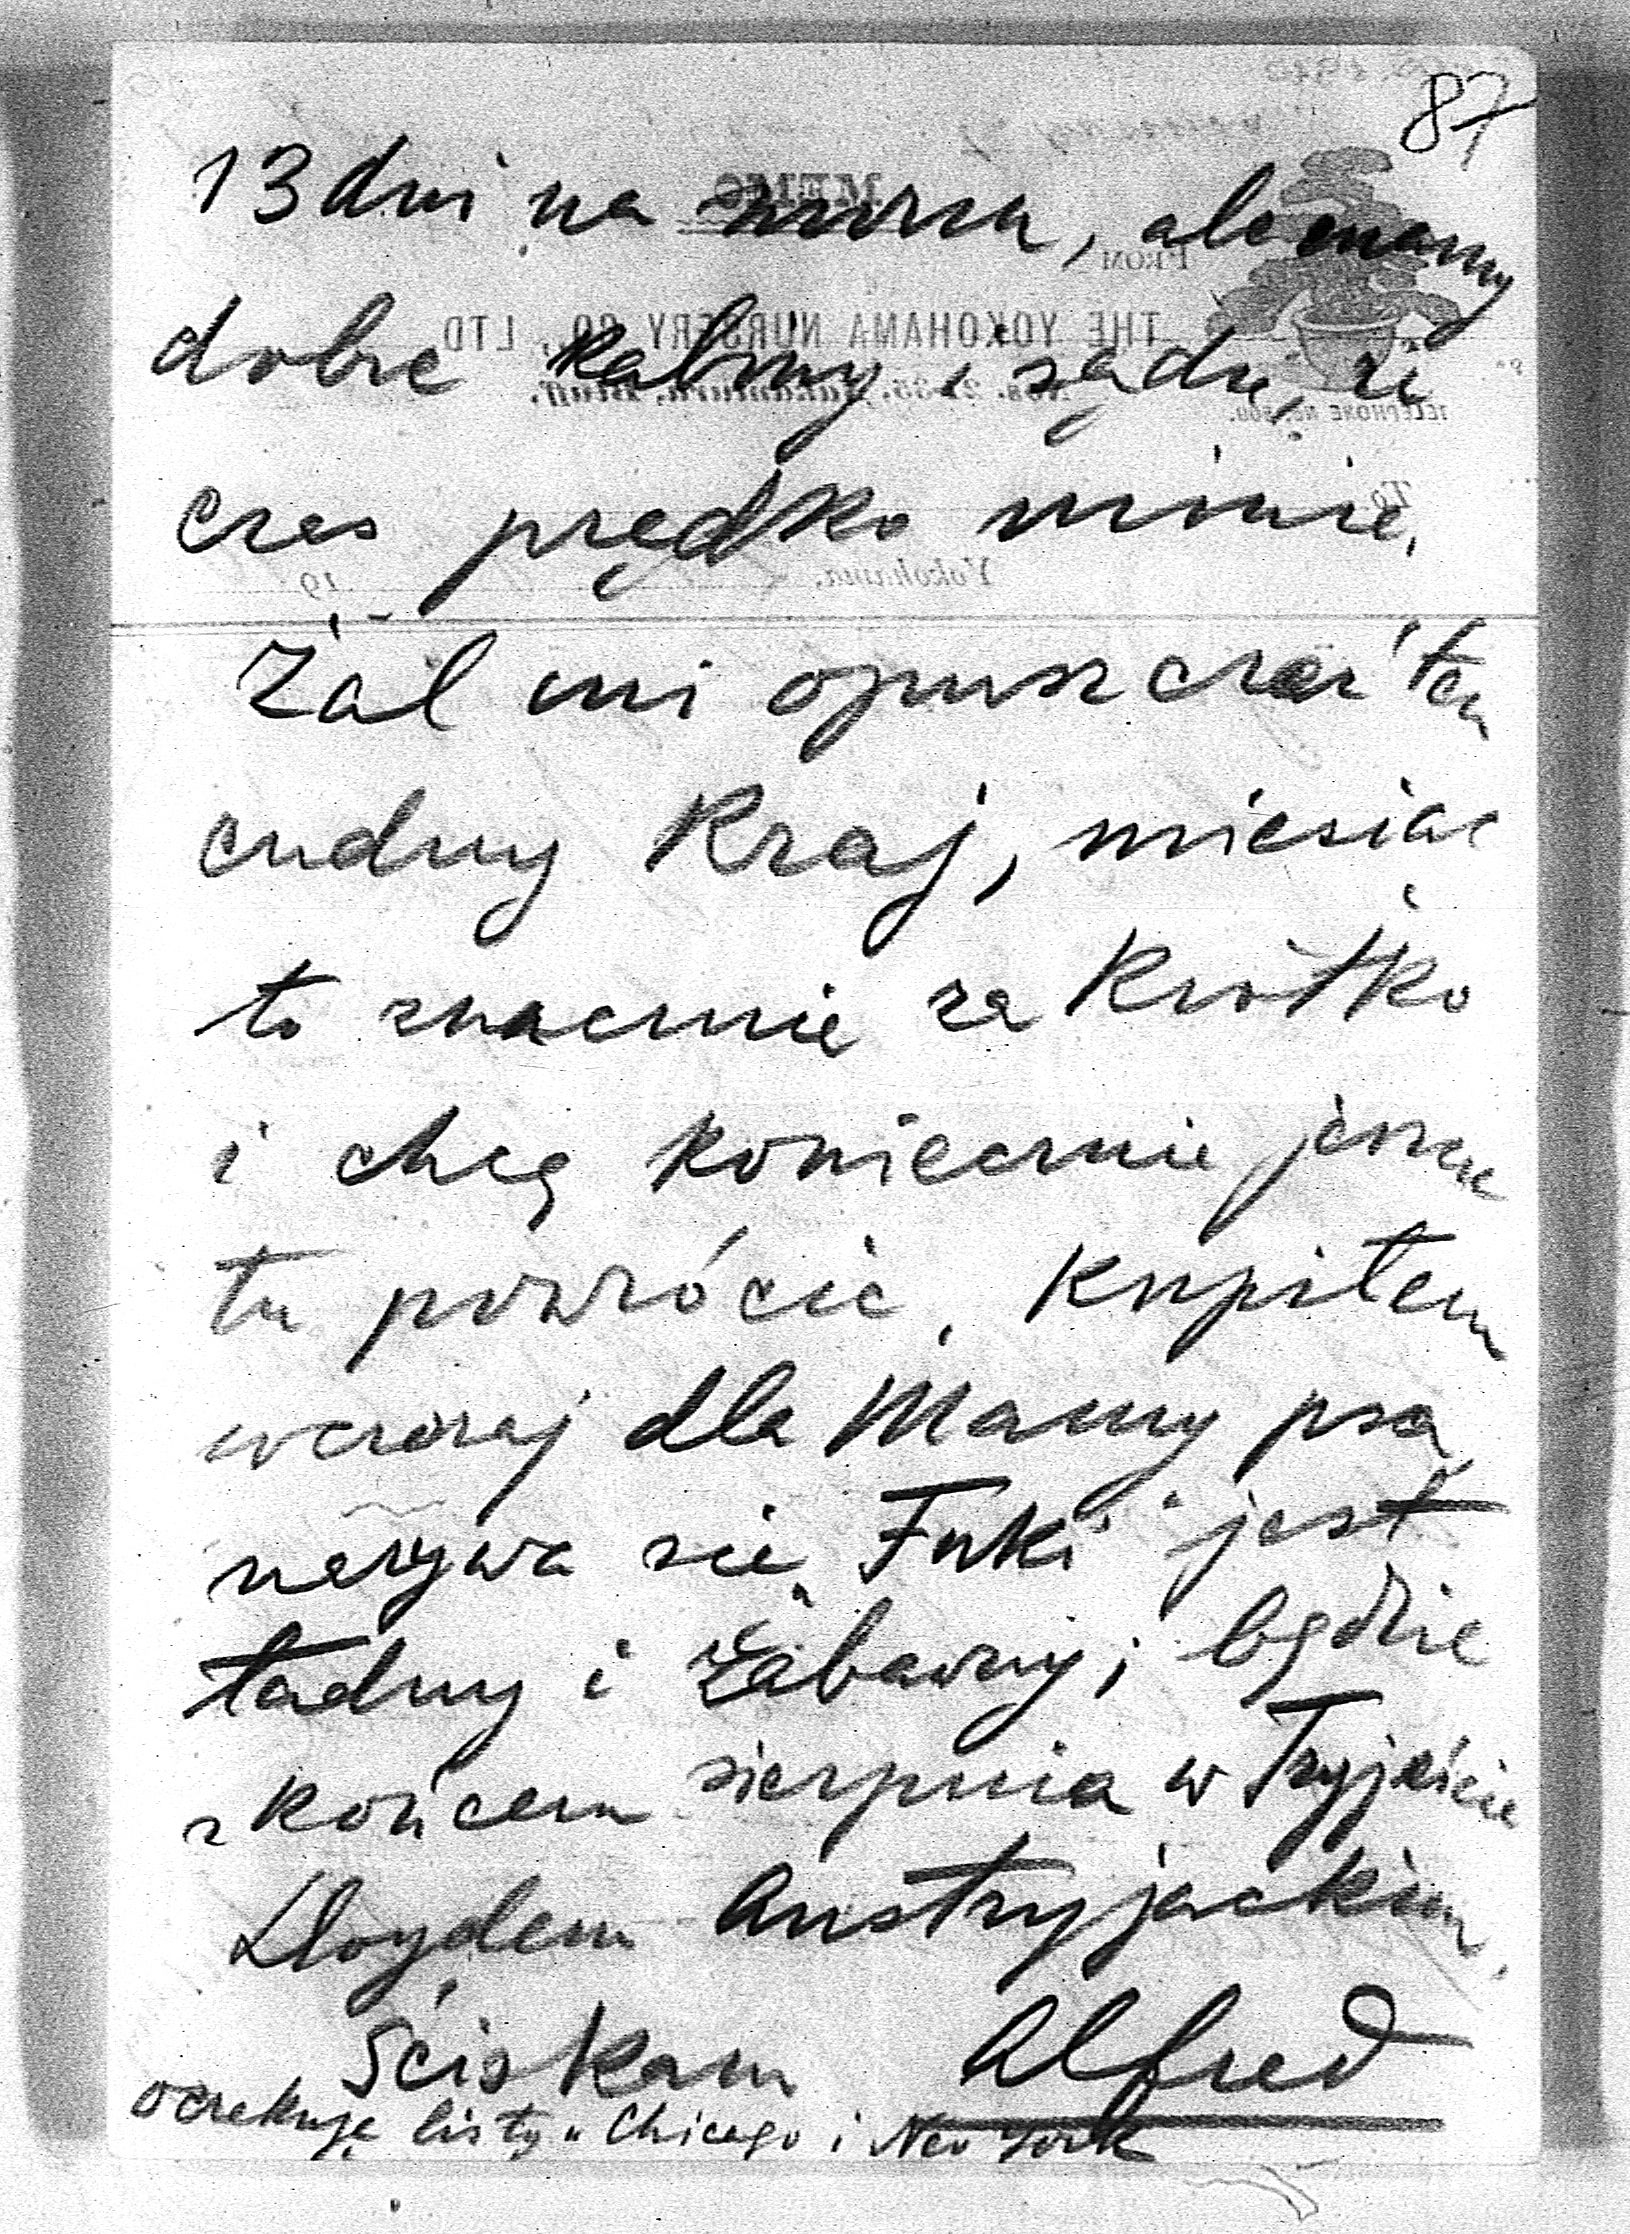 87
13 dni na morzu, ale mamy
dobre kabiny, sądzę, że
czas prędko minie.
Żal mi opuszczać ten
cudny kraj, miesiąc
to znacznie za krótko
i chcę koniecznie jeszcze
tu powrócić. Kupiłem
wczoraj dla Mamy psa,
nazywa się "Fuki" jest
ładny i zabawny; będzie
z końcem sierpnia w Tryjeście
Lloydem Austryjackim.
Ściskam Alfred
oczekuję listy w Chicago i New York
MEMO
FROM
THE YOKOHAMA NURSERY CO., LTD.
Nos. 21-35, Nakamura, Bluff.
To
Yokohama, 19